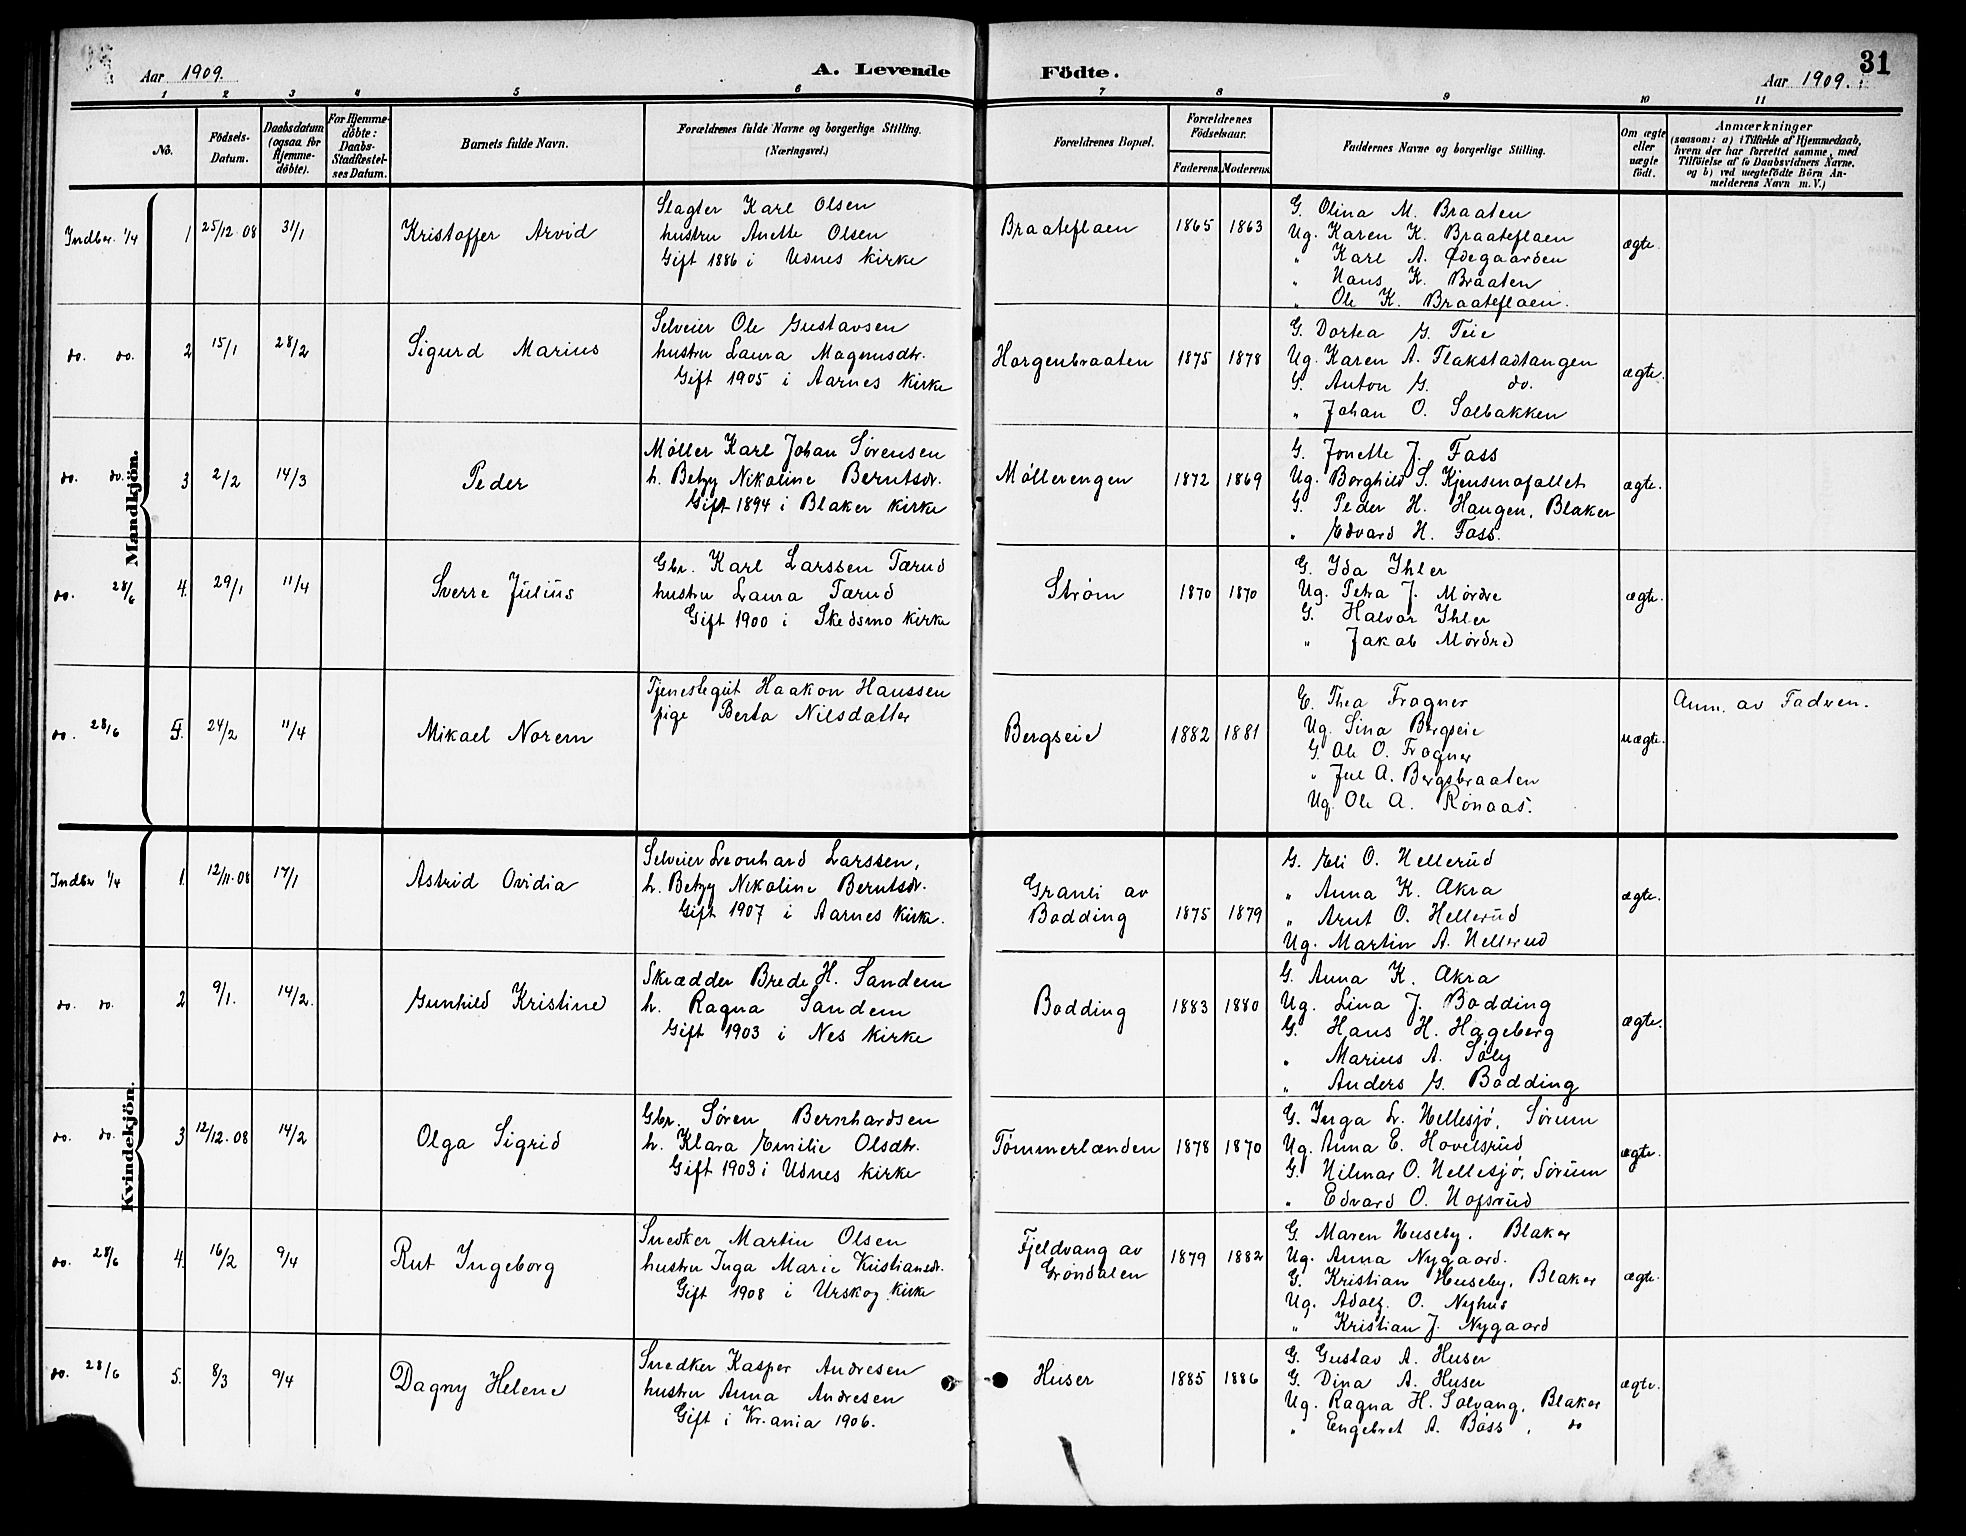 Aar 1909. A. Levende
Födte. Aar 1909. 31
1 2 3 4 5 6
7 8 9 10 11
No.
Födsels-
Datum.
Daabsdatum
(ogsaa for
Hjemme-
døbte).
For Hjemme-
døbte:
Daabs-
Stadfæstel-
ses Datum.
Barnets fulde Navn.
Forældrenes fulde Navne og borgerlige Stilling.
(Næringsvei.)
Forældrenes Bopæl.
Forældrenes
Födselsaar.
Faderens. Moderens.
Faddernes Navne og borgerlige Stilling.
Om ægte
eller
uægte
født.
Anmærkninger
(saasom: a) i Tilfælde af Hjemmedaab,
hvem der har forrettet samme, med
Tilföielse af to Daabsvidners Navne,
og b) ved uægtefödte Börn An-
melderens Navn m. V.)
Mandkjön.
Indber. 1/4 1 25/12 08 31/1 Kristoffer Arvid
Slagter Karl Olsen
hustru Anette Olsen
Gift 1886 i Udnes kirke
Braateflaen 1865 1863
G. Olina M. Braaten
Ug. Karen K. Braateflaen
" Karl A. Ødegaarden
" Hans K. Braaten
" Ole K. Braateflaen.
ægte.
do. do. 2 15/1 28/2 Sigurd Marius
Selveier Ole Gustavsen
hustru Laura Magnusdtr.
Gift 1905 i Aarnes kirke
Horgenbraaten 1875 1878
G. Dortea G. Teie
Ug. Karen A. Flakstadtangen
G. Anton G. do.
" Johan O. Solbakken
ægte.
do. do. 3 2/2 14/3 Peder
Møller Karl Johan Sørensen
h. Betzy Nikoline Berntsdr.
Gift 1894 i Blaker kirke
Møllerengen 1872 1869
G. Jonette J. Foss
Ug. Borghild S. Kjensmofallet
G. Peder H. Haugen, Blaker
" Edvard H. Foss.
ægte.
do. 28/6 4. 29/1 11/4 Sverre Julius
Gbr. Karl Larssen Tærud
hustru Laura Tærud
Gift 1900 i Skedsmo kirke
Strøm 1870 1870
G. Ida Ihler
Ug. Petra J. Mørdre
G. Halvor Ihler
" Jakob Mørdre
ægte.
do. 28/6 5. 24/2 11/4 Mikael Norem
Tjenestegut Haakon Hanssen
pige Berta Nilsdatter
Bergseie 1882 1881
E. Thea Frogner
Ug. Sina Bergseie
G. Ole O. Frogner
" Jul A. Bergsbraaten
Ug. Ole A. Rønaas.
uægte.
Anm. av Fadren.
Kvindekjön.
Indber 1/4 1. 12/11.08 17/1 Astrid Ovidia
Selveier Leonhard Larssen,
h. Betzy Nikoline Berntsdr.
Gift 1907 i Aarnes kirke.
Granli av
Bodding 1875 1879
G. Eli O. Hellerud
" Anna K. Akra
" Arnt O. Hellerud
Ug. Martin A. Hellerud
ægte.
do. do. 2 9/1. 14/2. Gunhild Kristine
Skrædder Brede H. Sandem
h. Ragna Sandem
Gift 1903 i Nes kirke
Bodding 1883 1880
G. Anna K. Akra
Ug. Lina J. Bodding
G. Hans H. Hageberg
" Marius A. Søly
" Anders G. Bodding
ægte.
do. do. 3 12/12.08 14/2 Olga Sigrid
Gbr. Søren Bernhardsen
h. Klara Emilie Olsdtr.
Gift 1903 i Udnes kirke
Tømmerlænden 1878 1870
G. Inga L. Hellesjø, Sørum
Ug. Anna E. Hovelsrud
G. Hilmar O. Hellesjø, Sørum
" Edvard O. Hofsrud
ægte.
do. 28/6 4. 16/2 9/4 Rut Ingeborg
Snedker Martin Olsen
hustru Inga Marie Kristiansdr.
Gift 1908 i Urskog kirke
Fjeldvang av
Grøndalen 1879 1882
G. Maren Huseby, Blaker
Ug. Anna Nygaard.
G. Kristian Huseby, Blaker
Ug. Adolf O. Nyhus
" Kristian J. Nygaard
ægte.
do. 28/6 5. 8/3 9/4 Dagny Helene
Snedker Kasper Andresen
hustru Anna Andresen
Gift i Kr.ania 1906.
Huser 1885 1886
G. Gustav A. Huser
G. Dina A. Huser
Ug. Ragna H. Solvang, Blaker
" Engebret A. Boss, do
ægte.